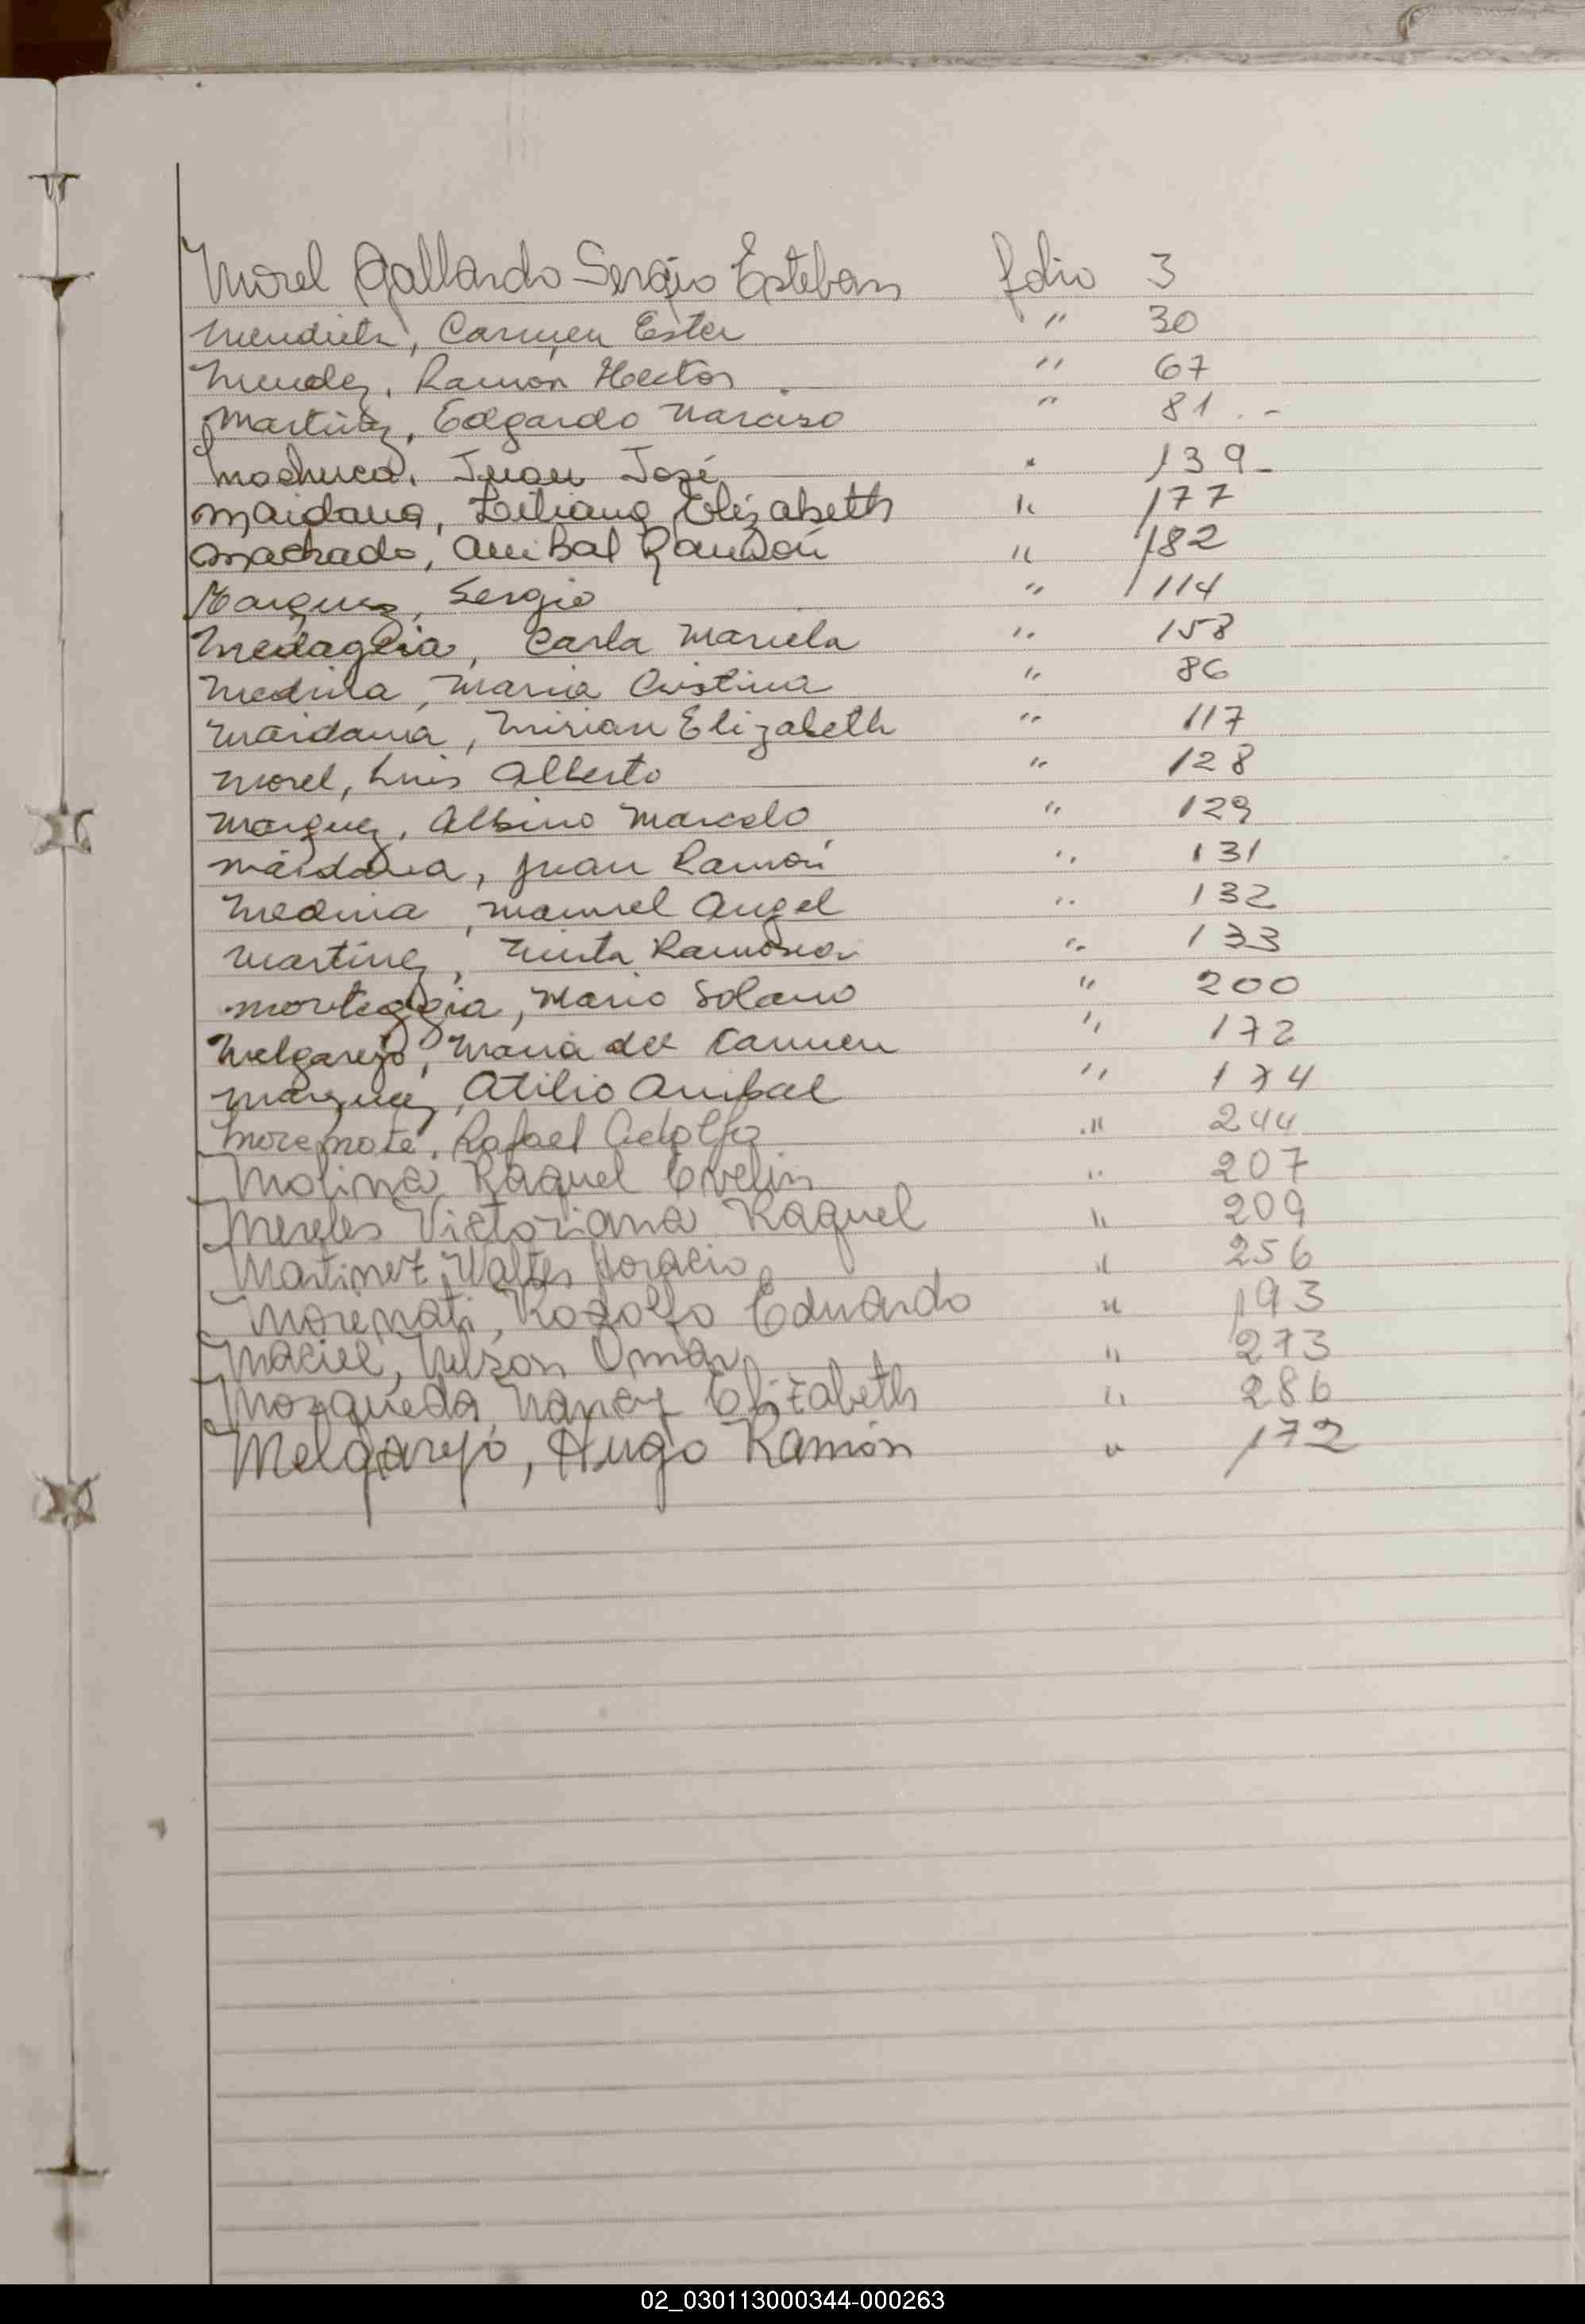 Morel Gallardo Sergio Esteban folio 3
Mendieta, Carmen Ester " 30
Mendez, Ramon Hector " 67
Martinez, Edgardo Narciso " 81.-
Machuca, Juan José " 139-
Maidana, Liliana Elizabeth " 177
Machado, Anibal Ramón " 182
Marquez, Sergio " 114
Medaglia, Carla Mariela " 158
Medina, Maria Cristina " 86
Maidana, Mirian Elizabeth " 117
Morel, Luis Alberto " 128
Marquez, Albino Marcelo " 129
Maidana, Juan Ramón " 131
Medina, Manuel Angel " 132
Martinez, Mirta Ramona " 133
Morteggia, Mario Solano " 200
Melgarejo, Maria del Carmen " 172
Marquez, Atilio Anibal " 174
Rafael Adolfo " 244
Molina Raquel Evelin " 207
Mereles Victoriana Raquel " 209
Martinez, Walter Horacio " 256
Morenati, Rodolfo Eduardo " 193
Maciel, Nelson Omar " 273
Mozqueda, Nancy Elizabeth " 286
Melgarejo, Hugo Ramón " 172
02_030113000344-000263